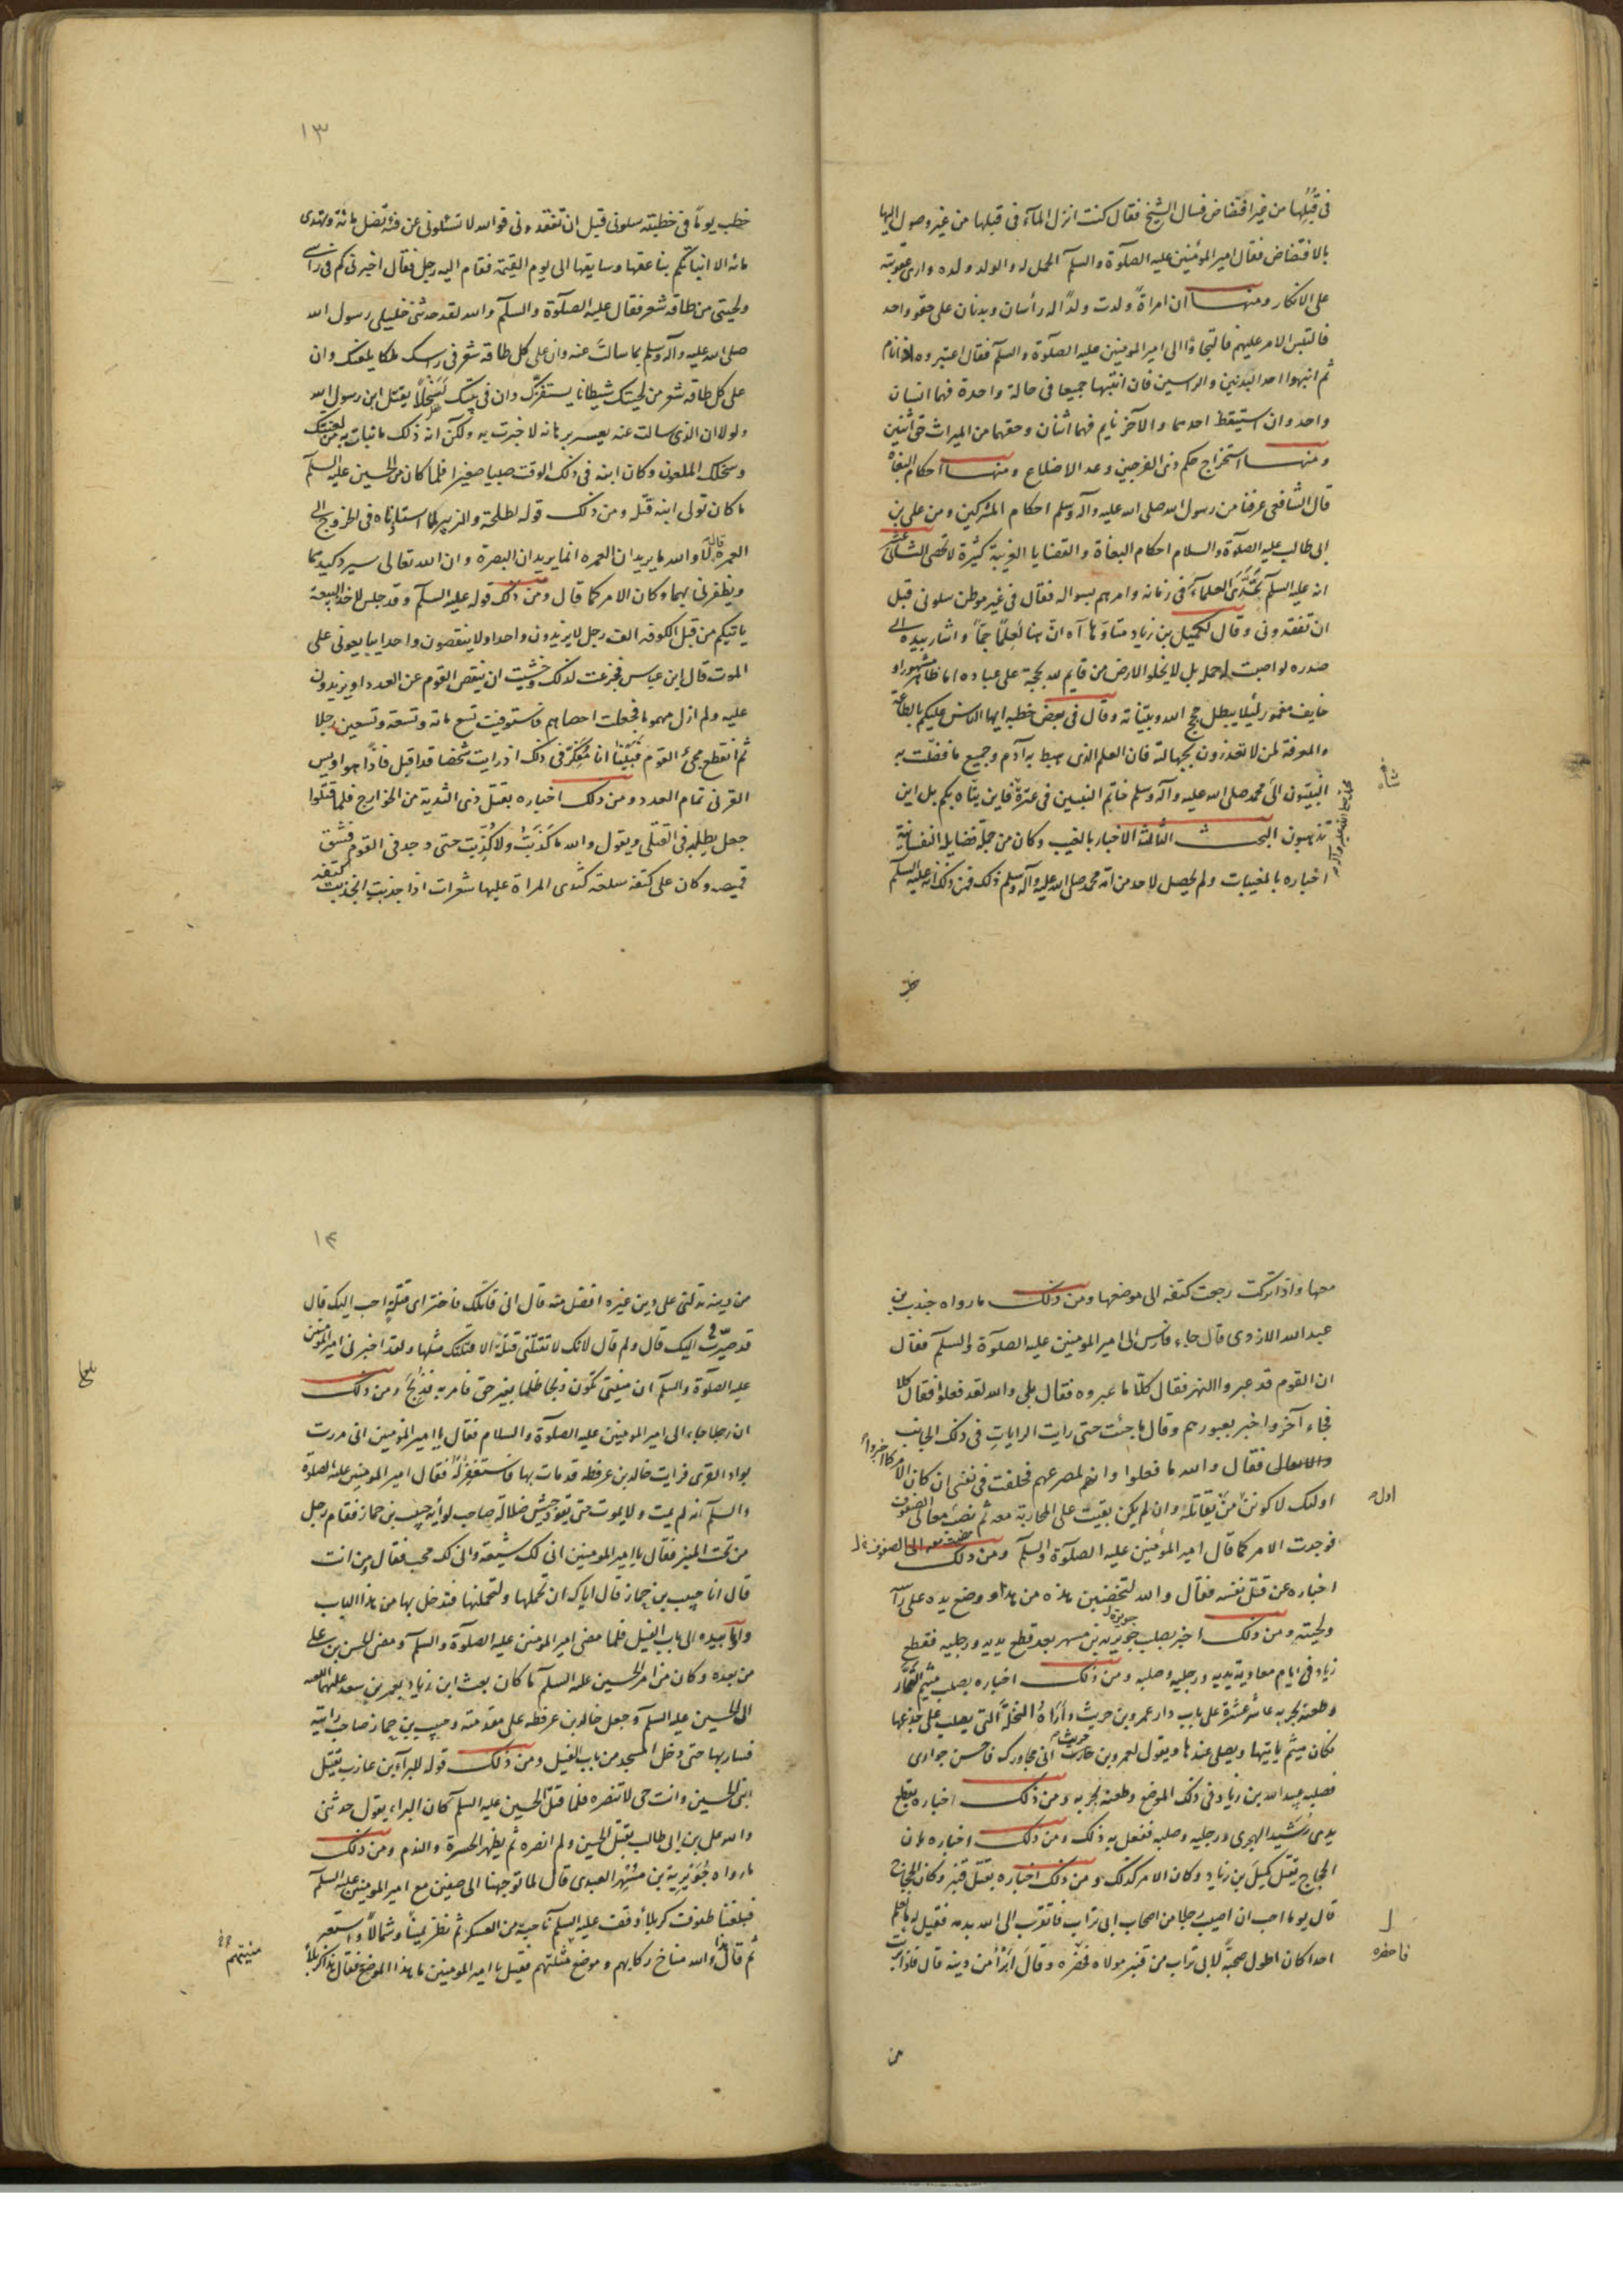 في قبلها من غير افتضاض فسال الشيخ فقال كنت انزل المآء في قبلها من غير وصول اليها
بالافتضاض فقال امير المؤمنين عليه الصلوة والسلم الحمل له والولد ولده وارى عقوبته
على الانكار ومنها ان امراةً ولدت ولدًا له رأسان وبدنان على حقو واحد
فالتبس الامر عليهم فالتجاؤا الى امير المومنين عليه الصلوة والسلم فقال اعتبروه اذا نام
ثم انبهوا احد البدنين والراسين فان انتبها جميعا في حالة واحدة فهما انسان
واحد وان استيقظ احدهما والآخر نايم فهما اثنان وحقهما من الميراث حق اثنين
ومنها استخراج حكم ذى الفرجين وعد الاضلاع ومنها احكام البغاة
قال الشافعى عرفنا من رسول الله صلى الله عليه وآله وسلم احكام المشركين ومن على بن
ابى طالب عليه الصلوة والسلام احكام البغاة والقضايا الغريبة كثيرة لا تحصى الثالث عشر
انه عليه السلم تحدى العلمآء في زمانه وامرهم بسواله فقال في غير موطن سلونى قبل
ان تفقدونى وقال لكميل بن زياد متاوها آه انّ هنا لَعِلمًا جمّا واشار بيده الى
صدره لو اصبت له حملة بل لا يخلو الارض من قايم لله بحجة على عباده اما ظاهر مشهور او
خايف مغمور لئيلا يبطل حجج الله وبيّناته وقال في بعض خطبه ايها الناس عليكم بالطاعة
والمعرفة لمن لا تعذرون بجهالته فان العلم الذى هبط به آدم وجميع ما فضّلت به
النبيّون الى محمد صلى الله عليه وآله وسلم خاتم النبيين في عترة فاين يتاه بكم بل اين
شاه
محمد صلى الله عليه وآله
تذهبون البحث الثالث الاخبار بالغيب وكان من جملة فضايله النفسانية
اخباره بالمغيبات ولم يحصل لاحد من امة محمد صلى الله عليه وآله وسلم ذلك فمن ذلك انه عليه السلم
خطب
١٣
خطب يوماً في خطبته سلونى قبل ان تفقدونى فوالله لا تسئلونى عن فئة تضل مائة وتهدى
مائة الا انباتكم بناعقها وسايقها الى يوم القيمة فقام اليه رجل فقال اخبرنى كم في رأسى
ولحيتى من طاقة شعر فقال عليه الصلوة والسلم والله لقد حدثنى خليلى رسول الله
صلى الله عليه وآله وسلم بما سالت عنه وان على كل طاقة شعر في راسك ملكا يلعنك وان
على كل طاقة شعر من لحيتك شيطانا يستفزّك وان في بيتك لَسَخلًا يقتل ابن رسول الله
ولولا ان الذى سالت عنه يعسر برهانه لاخبرت به ولكن اية ذلك ما نبات به من لعنتك
وسخلك الملعون وكان ابنه في ذلك الوقت صبيا صغيرا فلما كان من الحسين عليه السلم
ما كان تولى ابنه قتله ومن ذلك قوله لطلحة والزبير لما استاذناه في الخروج الى
العمرة قال لا والله ما يريدان العمرة انما يريدان البصرة وان الله تعالى سيرد كيدهما
ويظفرنى بهما وكان الامر كما قال ومن ذلك قوله عليه السلم وقد جلس لاخذ البيعة
ياتيكم من قبل الكوفه الف رجل لا يزيدون واحدا ولا ينقصون واحدا يبايعونى على
الموت قال ابن عباس فجزعت لذلك وخشيت ان ينقص القوم عن العدد او يزيدون
عليه ولم ازل مهموما فجعلت احصاهم فاستوفيت تسع مائة وتسعة وتسعين رجلا
ثم انقطع مجئ القوم فبَيْنا انا مُفَكِّر في ذلك اذ رايت شخصا قد اقبل فاذا هو اويس
القرنى تمام العدد ومن ذلك اخباره بقتل ذى الثدية من الخوارج فلما قتلوا
جعل يطلبه في القتلى ويقول والله ما كَذَبتُ ولا كُذِبت حتى وجد في القوم فشق
قميصه وكان على كتفه سلعة كثدى المراة عليها شعرات اذا جذبت انجذبت كتفه
معها واذا تركت رجعت كتفه الى موضعها ومن ذلك ما رواه جندب بن
عبد الله الازدى قال جاء فارس الى امير المومنين عليه الصلوة والسلم فقال
ان القوم قد عبروا النهر فقال كلّا ما عبروه فقال بلى والله لقد فعلوا فقال كلا
فجاء آخر واخبر بعبورهم وقال ما جئت حتى رايت الرايات في ذلك الجانب
والاثقال فقال والله ما فعلوا وانهم لمصرعهم فحلفت في نفسى ان كان الامر كما اخبروا
اولئك لاكونن من يقاتله وان لم يكن بقيت على المحاربة معه ثم نصت معه الى الصفوف
فوجدت الامر كما قال امير المؤمنين عليه الصلوة والسلم ومن ذلك
اخباره عن قتل نفسه فقال والله لتخضبن هذه من هذا ووضع يده على رأسه
ولحيته ومن ذلك اخبر بصلب جويرية بن مسهر بعد قطع يديه ورجليه فقطع
زياد في ايام معاوية يديه ورجليه وصلبه ومن ذلك اخباره بصلب ميثم التمّار
وطعنه بحربه عاشر عشرة على باب دار عمرو بن حريث وأراهُ النخلة التى يصلب على جذعها
فكان ميثم ياتيها ويصلى عندها ويقول لعمرو بن حريث انى مجاورك فاحسن جوارى
فصلبه عبيد الله بن زياد في ذلك الموضع وطعنه بحربه ومن ذلك اخباره بقطع
يدى رشيد الهجرى ورجليه وصلبه ففعل به ذلك ومن ذلك اخباره بان
الحجاج يقتل كميل بن زياد وكان الامر كذلك ومن ذلك اخباره بقتل قنبر وكان الحجاج
قال يوما احب ان اصيب رجلا من اصحاب ابى تراب فاتقرب الى الله بدمه فقيل له ما نعلم
احدا كان اطول صحبةً لابى تراب من قنبر مولاه فحضره وقال ابرأ من دينه قال فاذا برئت
فاحضره
من
١٤
من دينه تدلنى على دين غيره افضل منه قال انى قاتلك فاختر اى قتلةٍ احب اليك قال
قد صيّرت اليك قال ولم قال لانك لا تقتلنى قتلةً الا قتلتك مثلها ولقد اخبرنى امير المؤمنين
عليه الصلوة والسلم ان منيتى تكون ذبحا ظلما بغير حق فامر به فذُبِحَ ومن ذلك
ان رجلا جاء الى امير المومنين عليه الصلوة والسلام فقال يا امير المؤمنين انى مررت
بواد القرى فرايت خالد بن عرفطه قد مات بها فاستغفر لَهُ فقال امير المومنين عليه الصلوة
والسلم انه لم يمت ولا يموت حتى يقود جيش ضلالة صاحب لوائه حبيب بن حماز فقام رجل
من تحت المنبر فقال يا امير المومنين انى لك شيعة وانى لك محب فقال من انت
قال انا حبيب بن حماز قال اياك ان تحملها ولتحملنها فتدخل بها من هذا الباب
وأومأ بيده الى باب الفيل فلما مضى امير المؤمنين عليه الصلوة والسلم ومضى الحسن بن على
من بعده وكان من امر الحسين عليه السلم ما كان بعث ابن زياد بعمر بن سعد عليهما اللعنه
الى الحسين عليه السلم وجعل خالد بن عرفطه على مقدمته وحبيب بن حماز صاحب رايته
فسار بها حتى دخل المسجد من باب الفيل ومن ذلك قوله للبرآء بن عازب يقتل
ابنى الحسين وانت حى لا تنصره فلما قتل الحسين عليه السلم كان البراء يقول صدق
والله على بن ابى طالب يقتل الحسين ولم انصره ثم يظهر الحسرة والندم ومن ذلك
ما رواه جُوَيْرية بن مُسْهِر العبدى قال لما توجهنا الى صفين مع امير المومنين عليه السلم
فبلغنا طفوف كربلأ وقف عليه السلم ناحية من العسكر ثم نظر يمينًا وشمالاً واستعبر
ثم قال هذا والله مناخ ركابهم وموضع منيّتهم فقيل يا امير المومنين ما هذا الموضع فقال هذا كربلأ
منيتهم